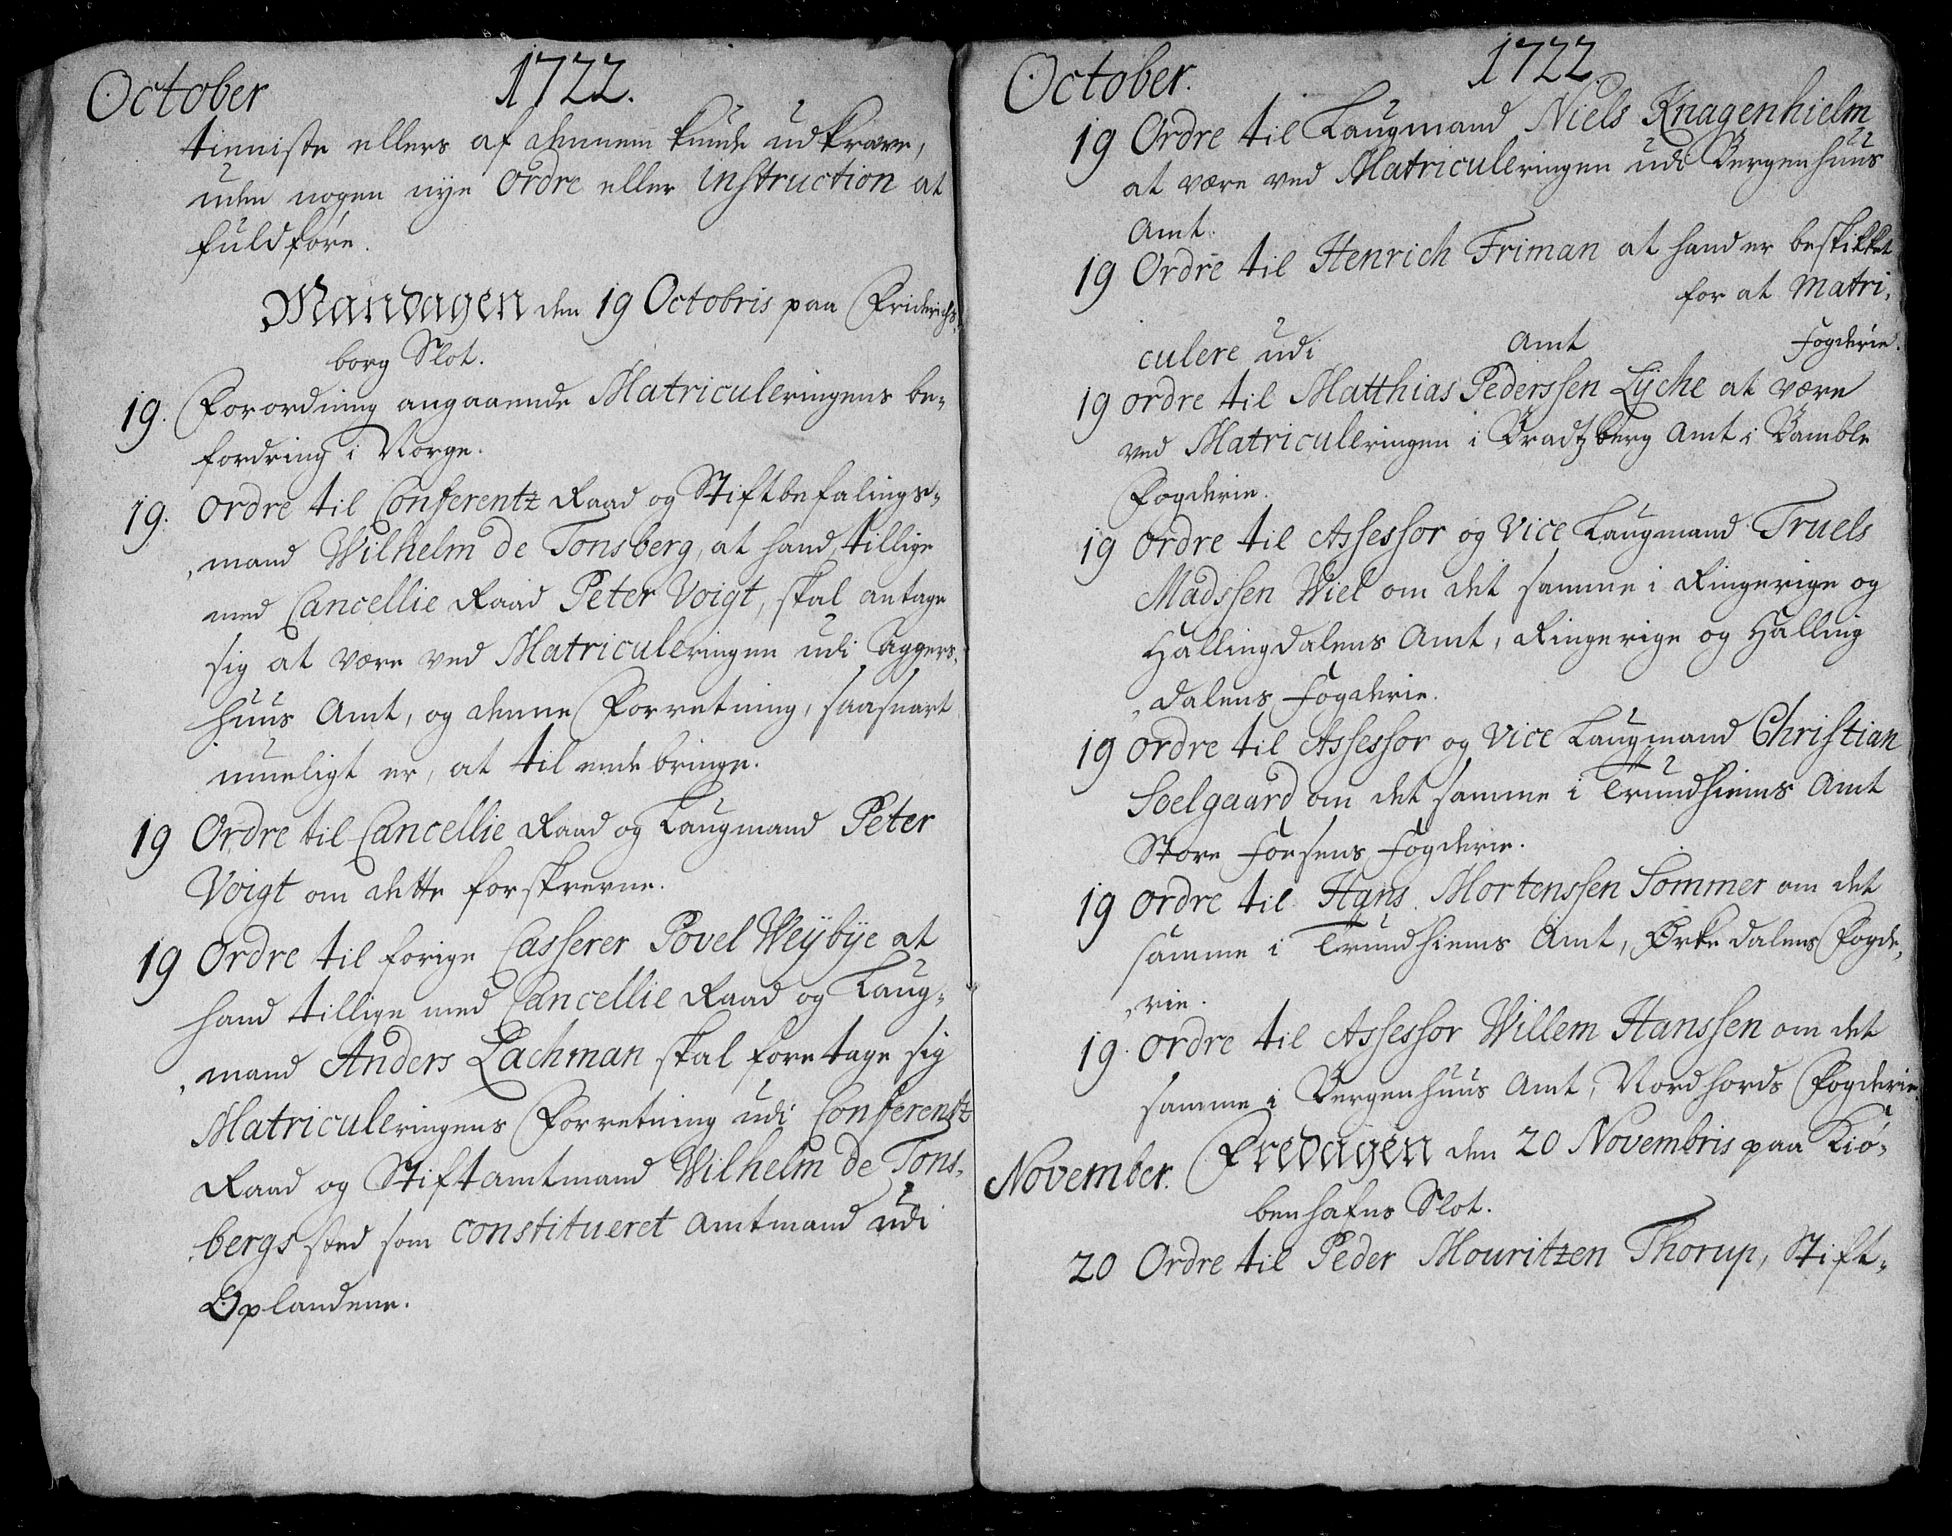 October 1722.
tienniste ellers af dennem kunde udkræve,
uden nogen nye Ordre eller instruction at
fuldføre.
Mandagen den 19 Octobris paa Friderichs,
borg Slot.
19. Forordning angaaende Matriculeringens be,,
fordring i Norge.
19. Ordre til Conferentz Raad og Stiftbefalings,,
,mand Wilhelm de Tonsberg, at hand, tillige
med Cancellie Raad Peter Voigt, skal antage
sig at være ved Matriculeringen udi Aggers,
huus Amt, og denne Forretning, saasnart
mueligt er, at til ende bringe.
19 Ordre til Cancellie Raad og Laugmand Peter
Voigt om dette forskrevne.
19 Ordre til forige Casserer Povel Weybye at
hand tillige med Cancellie Raad og Laug,,
,mand Anders Lachman skal foretage sig
Matriculeringens Forretning udi Conferentz
Raad og Stiftamtmand Wilhelm de Tons,
,bergs sted som constitueret Amtmand udi
Oplandene.
October. 1722.
19 Ordre til Laugmand Niels Knagenhielm
at være ved Matriculeringen udi Bergenhuus
Amt.
19 Ordre til Henrich Friman at hand er beskikket
for at Matri,
culere udi Amt Fogderie.
19 Ordre til Matthias Pederssen Lyche at være
ved Matriculeringen i Bradtzberg Amt i Bamble
Fogderie.
19 Ordre til Assessor og Vice Laugmand Truels
Madssen Wiel om det samme i Ringerige og
Hallingdalens Amt, Ringerige og Halling
,dalens Fogderie.
19 Ordre til Assessor og Vice Laugmand Christian
Soelgaard om det samme i Trundhiems Amt
Store Fosens Fogderie.
19 Ordre til Hans Mortenssen Sommer om det
samme i Trundhiems Amt, Ørkedalens Fogde,
,rie.
19. Ordre til Assessor Willem Hanssen om det
samme i Bergenhuus Amt, Nordhords Fogderie
November. Fredagen den 20 Novembris paa Kiø,
benhafns Slot.
20 Ordre til Peder Mouritzen Thorup, Stift,,